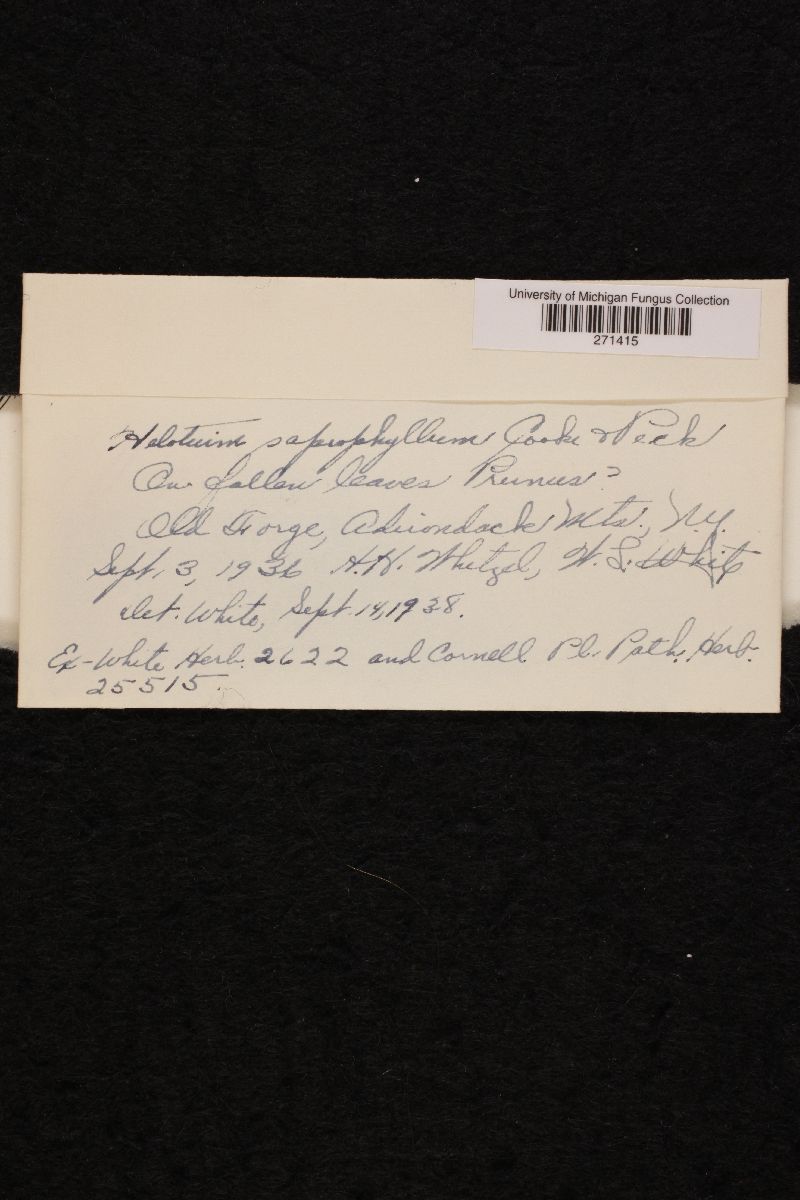 University of Michigan Fungus Collection
271415
Helotium saprophyllum Cooke & Peck
On fallen leaves Prunus?
Old Forge, Adirondack Mts., N.Y.
Sept. 3, 1936 H.H. Whetzel, W.L. White
det. White, Sept. 14, 1938.
Ex-White Herb. 2622 and Cornell Pl. Path. Herb.
25515.